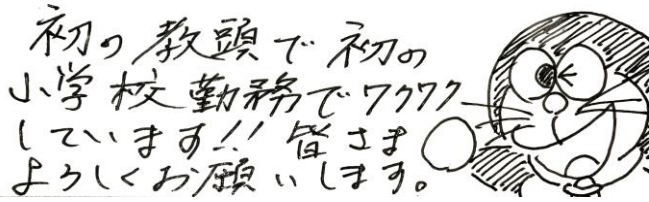 初の教頭で初の
小学校勤務でワクワク
しています!! 皆さま
よろしくお願いします。